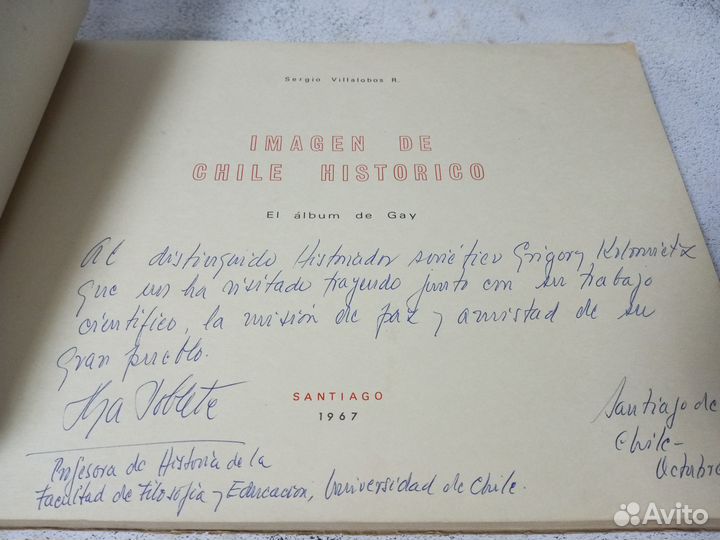 Sergio Villalobos R.
IMAGEN DE
CHILE HISTORICO
El álbum de Gay
Al distinguido Historiador soviético Grigory Kolomietz
que nos ha visitado trayendo junto con su trabajo
científico, la misión de paz y amistad de su
gran pueblo.
Poblete
SANTIAGO
1967
Santiago de
Chile-
Octubre
Profesora de Historia de la
Facultad de Filosofía y Educación, Universidad de Chile.
Avito